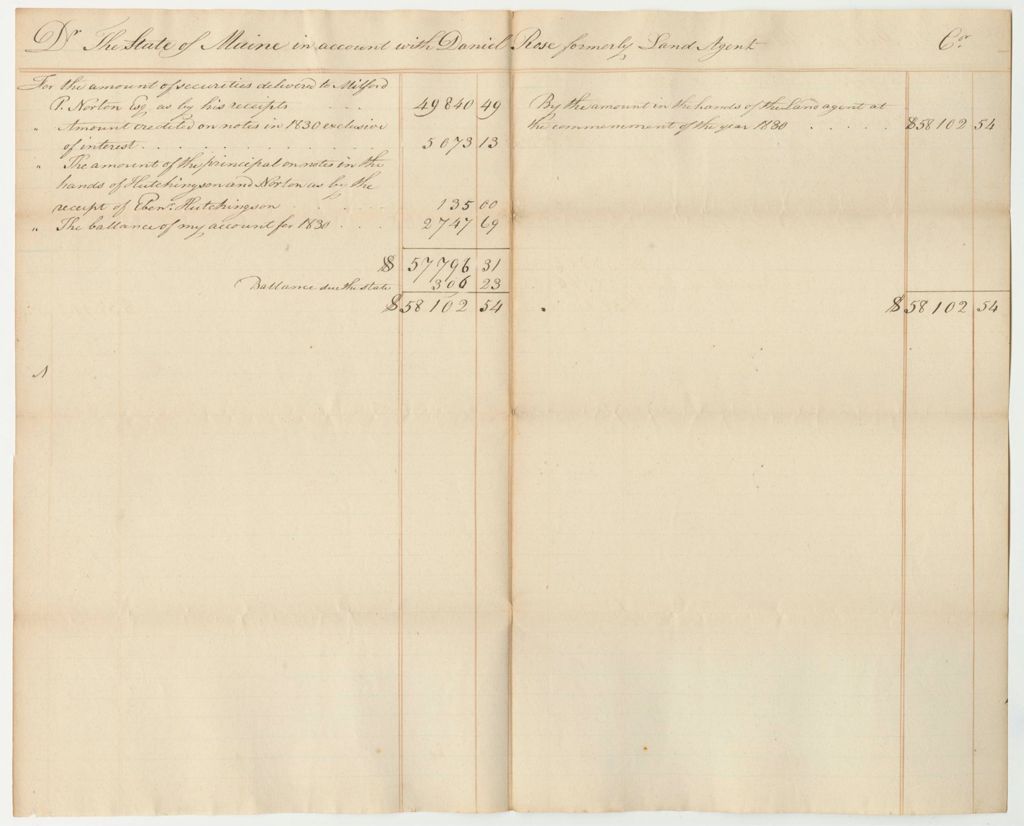 Dr The State of Maine in account with Daniel Rose formerly Land Agent Cr
For the amount of securities delivered to Milford
P. Norton Esq as by his receipts . . . 49840 49
" Amount credited on notes in 1830 exclusive
of interest . . . . . . . . . . . 5073 13
" The amount of the principal on notes in the
hands of Hutchingson and Norton as by the
receipt of Ebenr. Hutchingson . . . . . 135 00
" The ballance of my account for 1830 . . . . 2747 69
$ 57796 31
Ballance due the state 306 23
$58102 54
By the amount in the hands of the Land agent at
the commencment of the year 1830 . . . . . . $58102 54
$58102 54